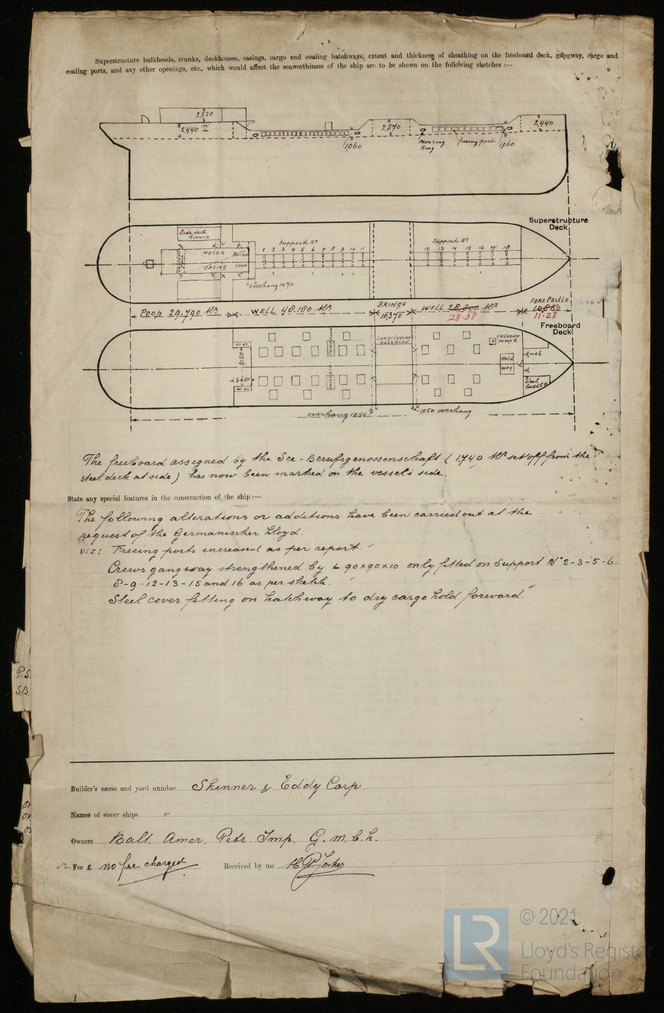 Superstructure bulkheads, trunks, deckhouses, casings, cargo and coaling hatchways, extent and thickness of sheathing on the freeboard deck, gangway, cargo and
coaling ports, and any other openings, etc., which would affect the seaworthiness of the ship are to be shewn on the following sketches :—
2,320
2,440
2,370
2,440
1,060
Mooring Ring
freeing ports
1,060
Superstructure
Deck
Supports No
1 2 3 4 5 6 7 8 9 10 11
Supports No
12 13 14 15 16 17 18
MOTOR
CASING
overhang 1470
POOP 29.790 Mr
WELL 48.180 Mr
BRIDGE
10,375
WELL 28.800 Mr
28.38
FORECASTLE
10.860
11.28
Freeboard
Deck
overhang 1050
1050 overhang
The freeboard assigned by the See-Berufsgenossenschaft (1,740 Mr set off from the
steel deck at side) has now been marked on the vessels side.
State any special features in the construction of the ship :—
The following alterations or additions have been carried out at the
request of the Germanischer Lloyd.
viz: Freeing ports increased as per report
Crews gangway strengthened by L 90x90x10 only fitted on Support No 2-3-5-6
8-9-12-13-15 and 16 as per sketch.
Steel cover fitting on hatchway to dry cargo hold forward.
Builder's name and yard number Skinner & Eddy Corp.
Names of sister ships "
Owners Balt. Amer. Petr. Imp. G.m.b.h.
Fee £ no fee charged Received by me
P.S.
S.B.
LR
© 2021
Lloyd's Register
Foundation